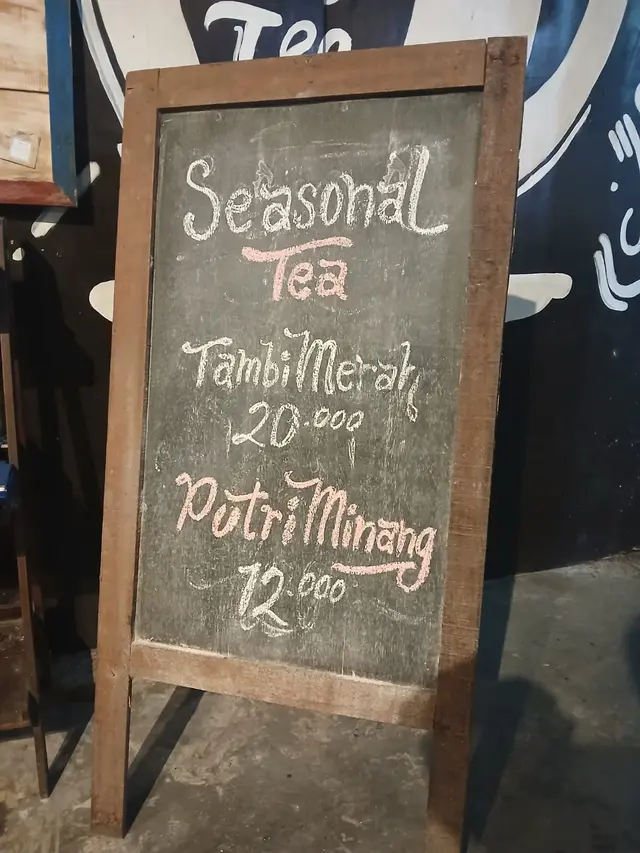 Tea
Seasonal
Tea
Tambi Merah
20.000
Putri Minang
12.000